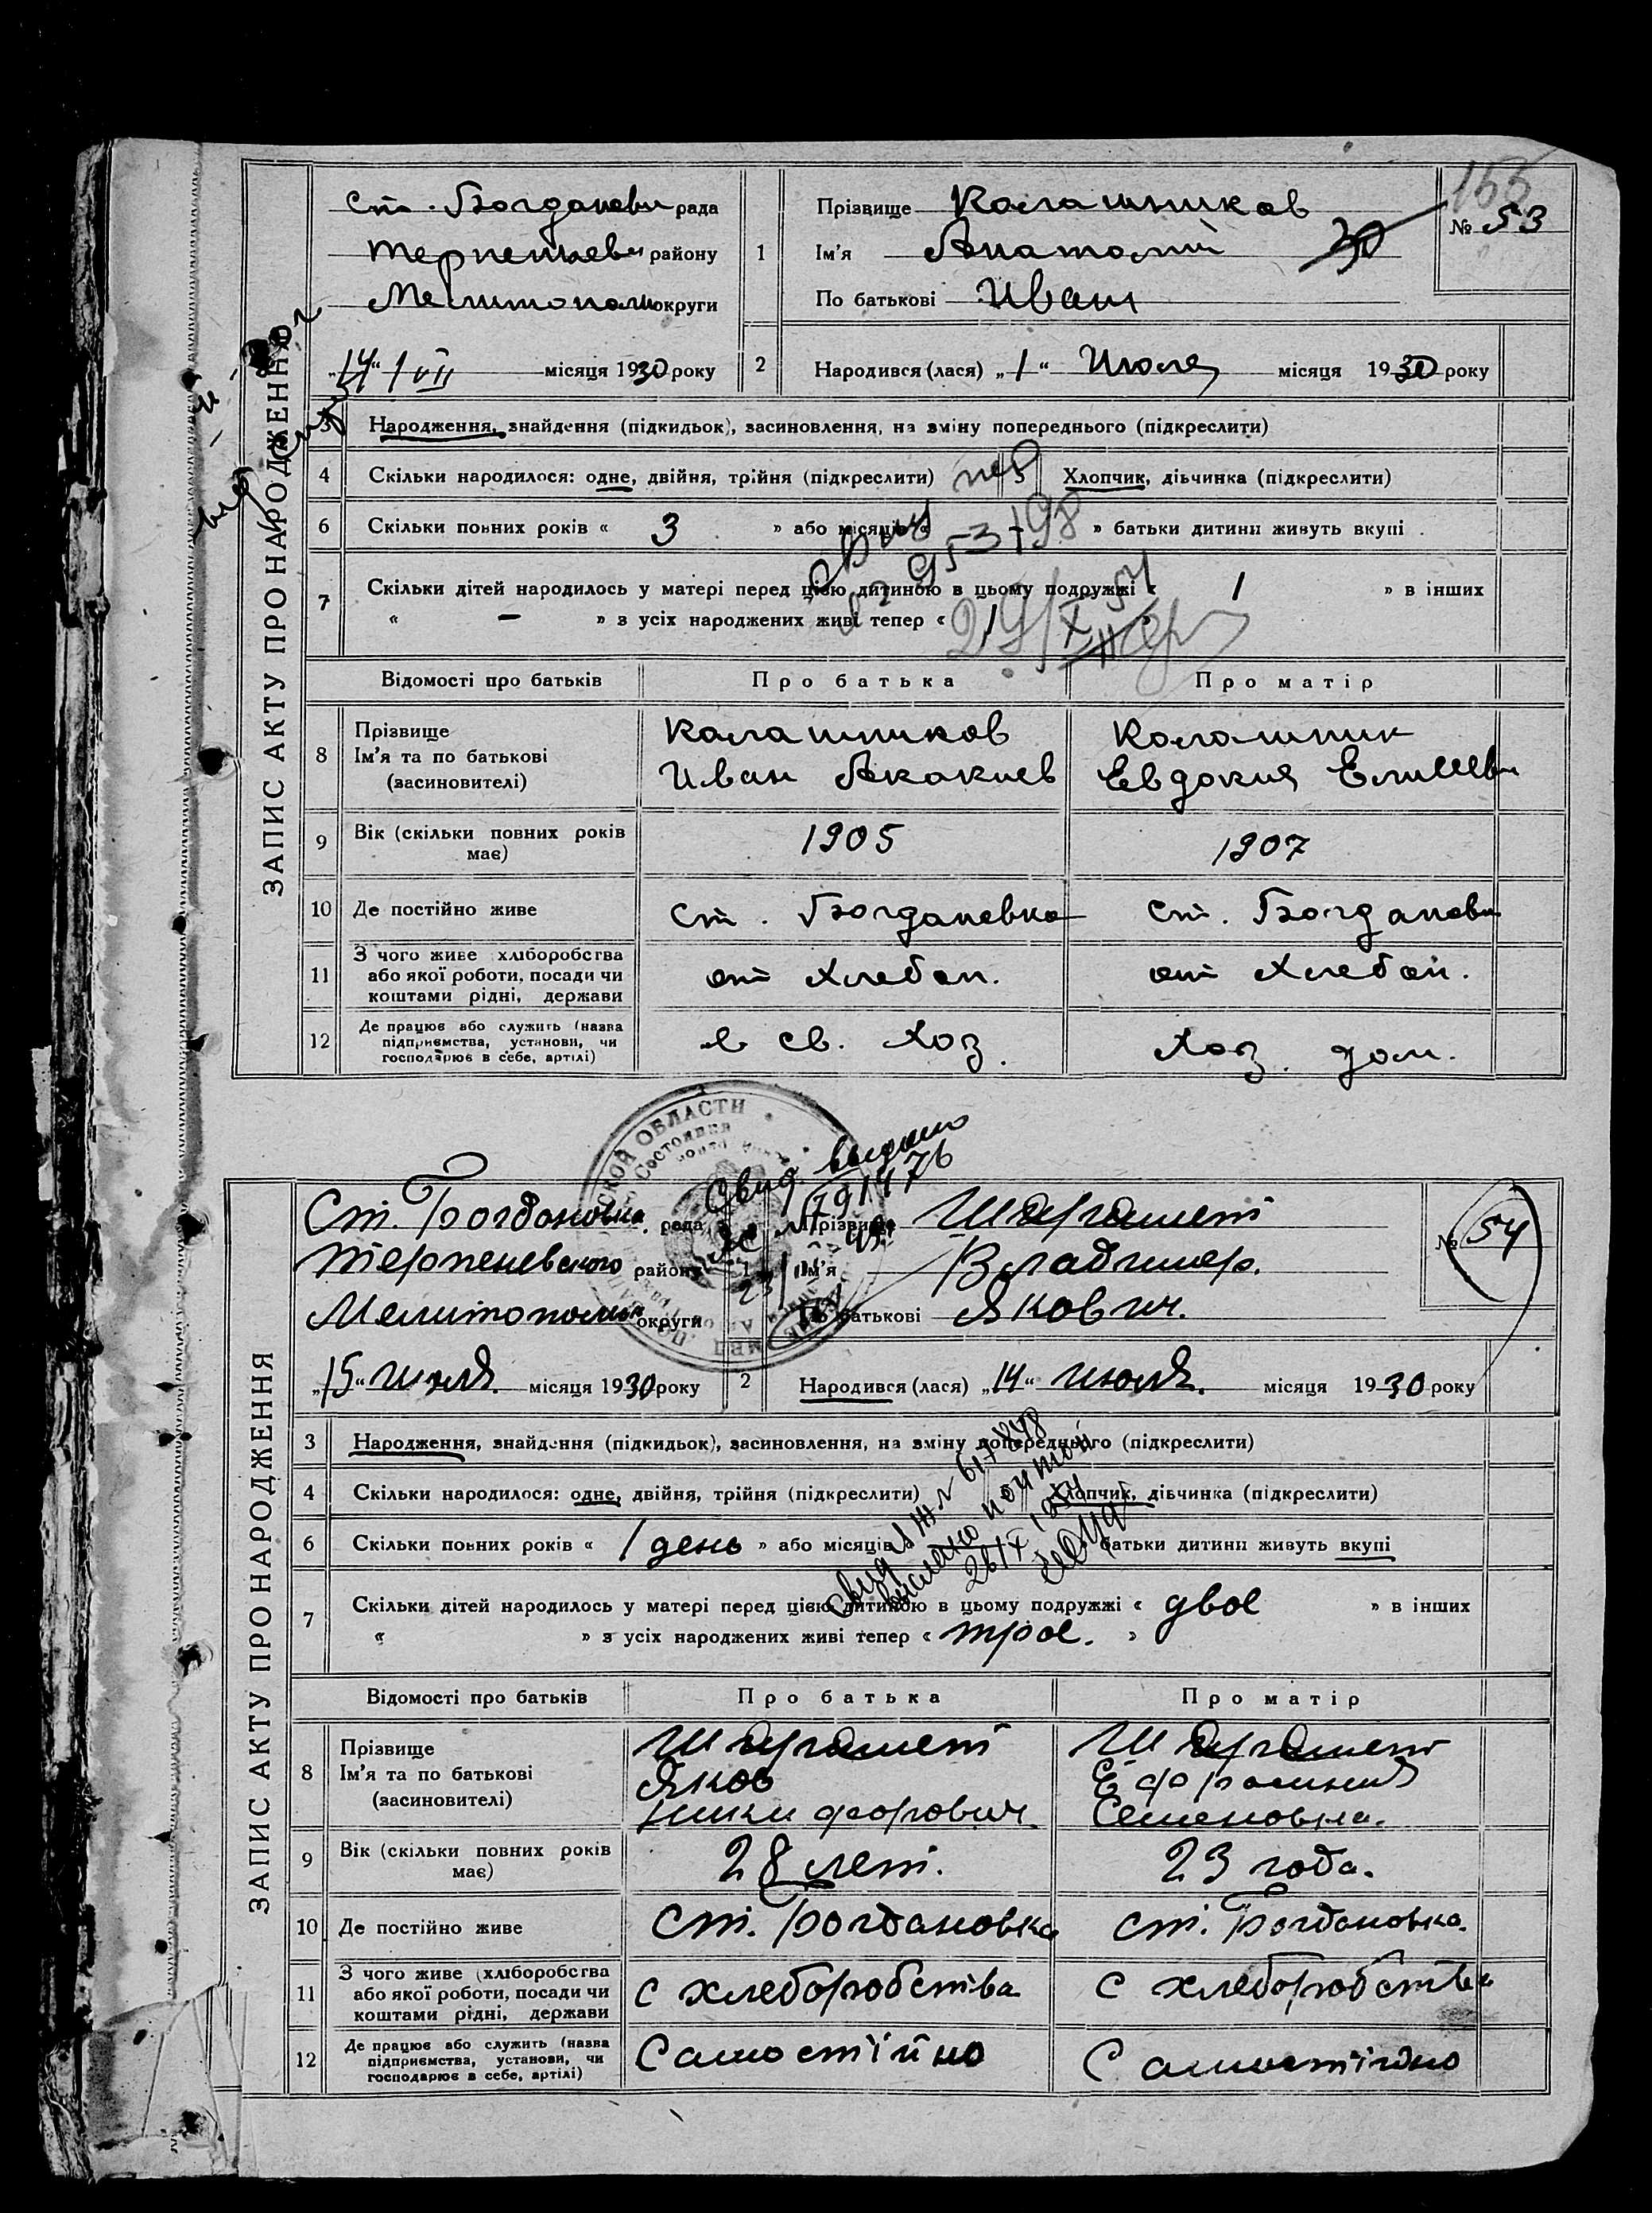 155
Ст. Богдановк рада
Терпеньев району
Мелитополь округи
"14" VII місяця 1930 року
1
Прізвище Калашников
Ім'я Анатолий 30
По батькові Иван
№ 53
2 Народився (лася) „1“ Июля місяця 1930 року
ЗАПИС АКТУ ПРО НАРОДЖЕННЯ
3 Народження, знайдення (підкидьок), засиновлення, на зміну попереднього (підкреслити)
4 Скільки народилося: одне, двійня, трійня (підкреслити) 5 Хлопчик, дівчинка (підкреслити)
6 Скільки повних років « 3 » або місяців « – » батьки дитини живуть вкупі
7 Скільки дітей народилось у матері перед цією дитиною в цьому подружжі « 1 » в інших
« – » з усіх народжених живі тепер « 1
953198
29/X 51
Відомості про батьків Про батька Про матір
8 Прізвище Ім'я та по батькові (засновителі)
Калашников Калашник
Иван Акакиев Евдокия Елисеев
9 Вік (скільки повних років має) 1905 1907
10 Де постійно живе ст. Богдановка ст. Богдановк
11 З чого живе (хліборобства або якої роботи, посади чи коштами рідні, держави
от хлебоп. от хлебоп.
12 Де працює або служить (назва підприємства, установи, чи господарює в себе, артілі)
в св. хоз. хоз. дом.
ОБЛАСТИ
Свид. выдано
791476
Ст. Богдановка рада
Терпеневского району
Мелитополь округи
„15“ июля місяця 1930 року
1
Прізвище
Ім'я Владимер.
По батькові Якович.
№ 54
2 Народився (лася) „14“ июля. місяця 1930 року
ЗАПИС АКТУ ПРО НАРОДЖЕННЯ
3 Народження, знайдення (підкидьок), засиновлення, на зміну попереднього (підкреслити)
4 Скільки народилося: одне, двійня, трійня (підкреслити) 5 Хлопчик, дівчинка (підкреслити)
6 Скільки повних років « 1 день » або місяців батьки дитини живуть вкупі
7 Скільки дітей народилось у матері перед цією дитиною в цьому подружжі « двое » в інших
« » з усіх народжених живі тепер « трое. »
выслано почтой
26/X 1954
Відомості про батьків Про батька Про матір
8 Прізвище Ім'я та по батькові (засиновителі)
Яков Ефросиния
Никифорович. Семеновна.
9 Вік (скільки повних років має) 28 лет. 23 года.
10 Де постійно живе Ст. Богдановка ст. Богдановка.
11 З чого живе (хліборобства або якої роботи, посади чи коштами рідні, держави
с хлеборобства с хлеборобства
12 Де працює або служить (назва підприємства, установи, чи господарює в себе, артілі)
Самостійно Самостійно